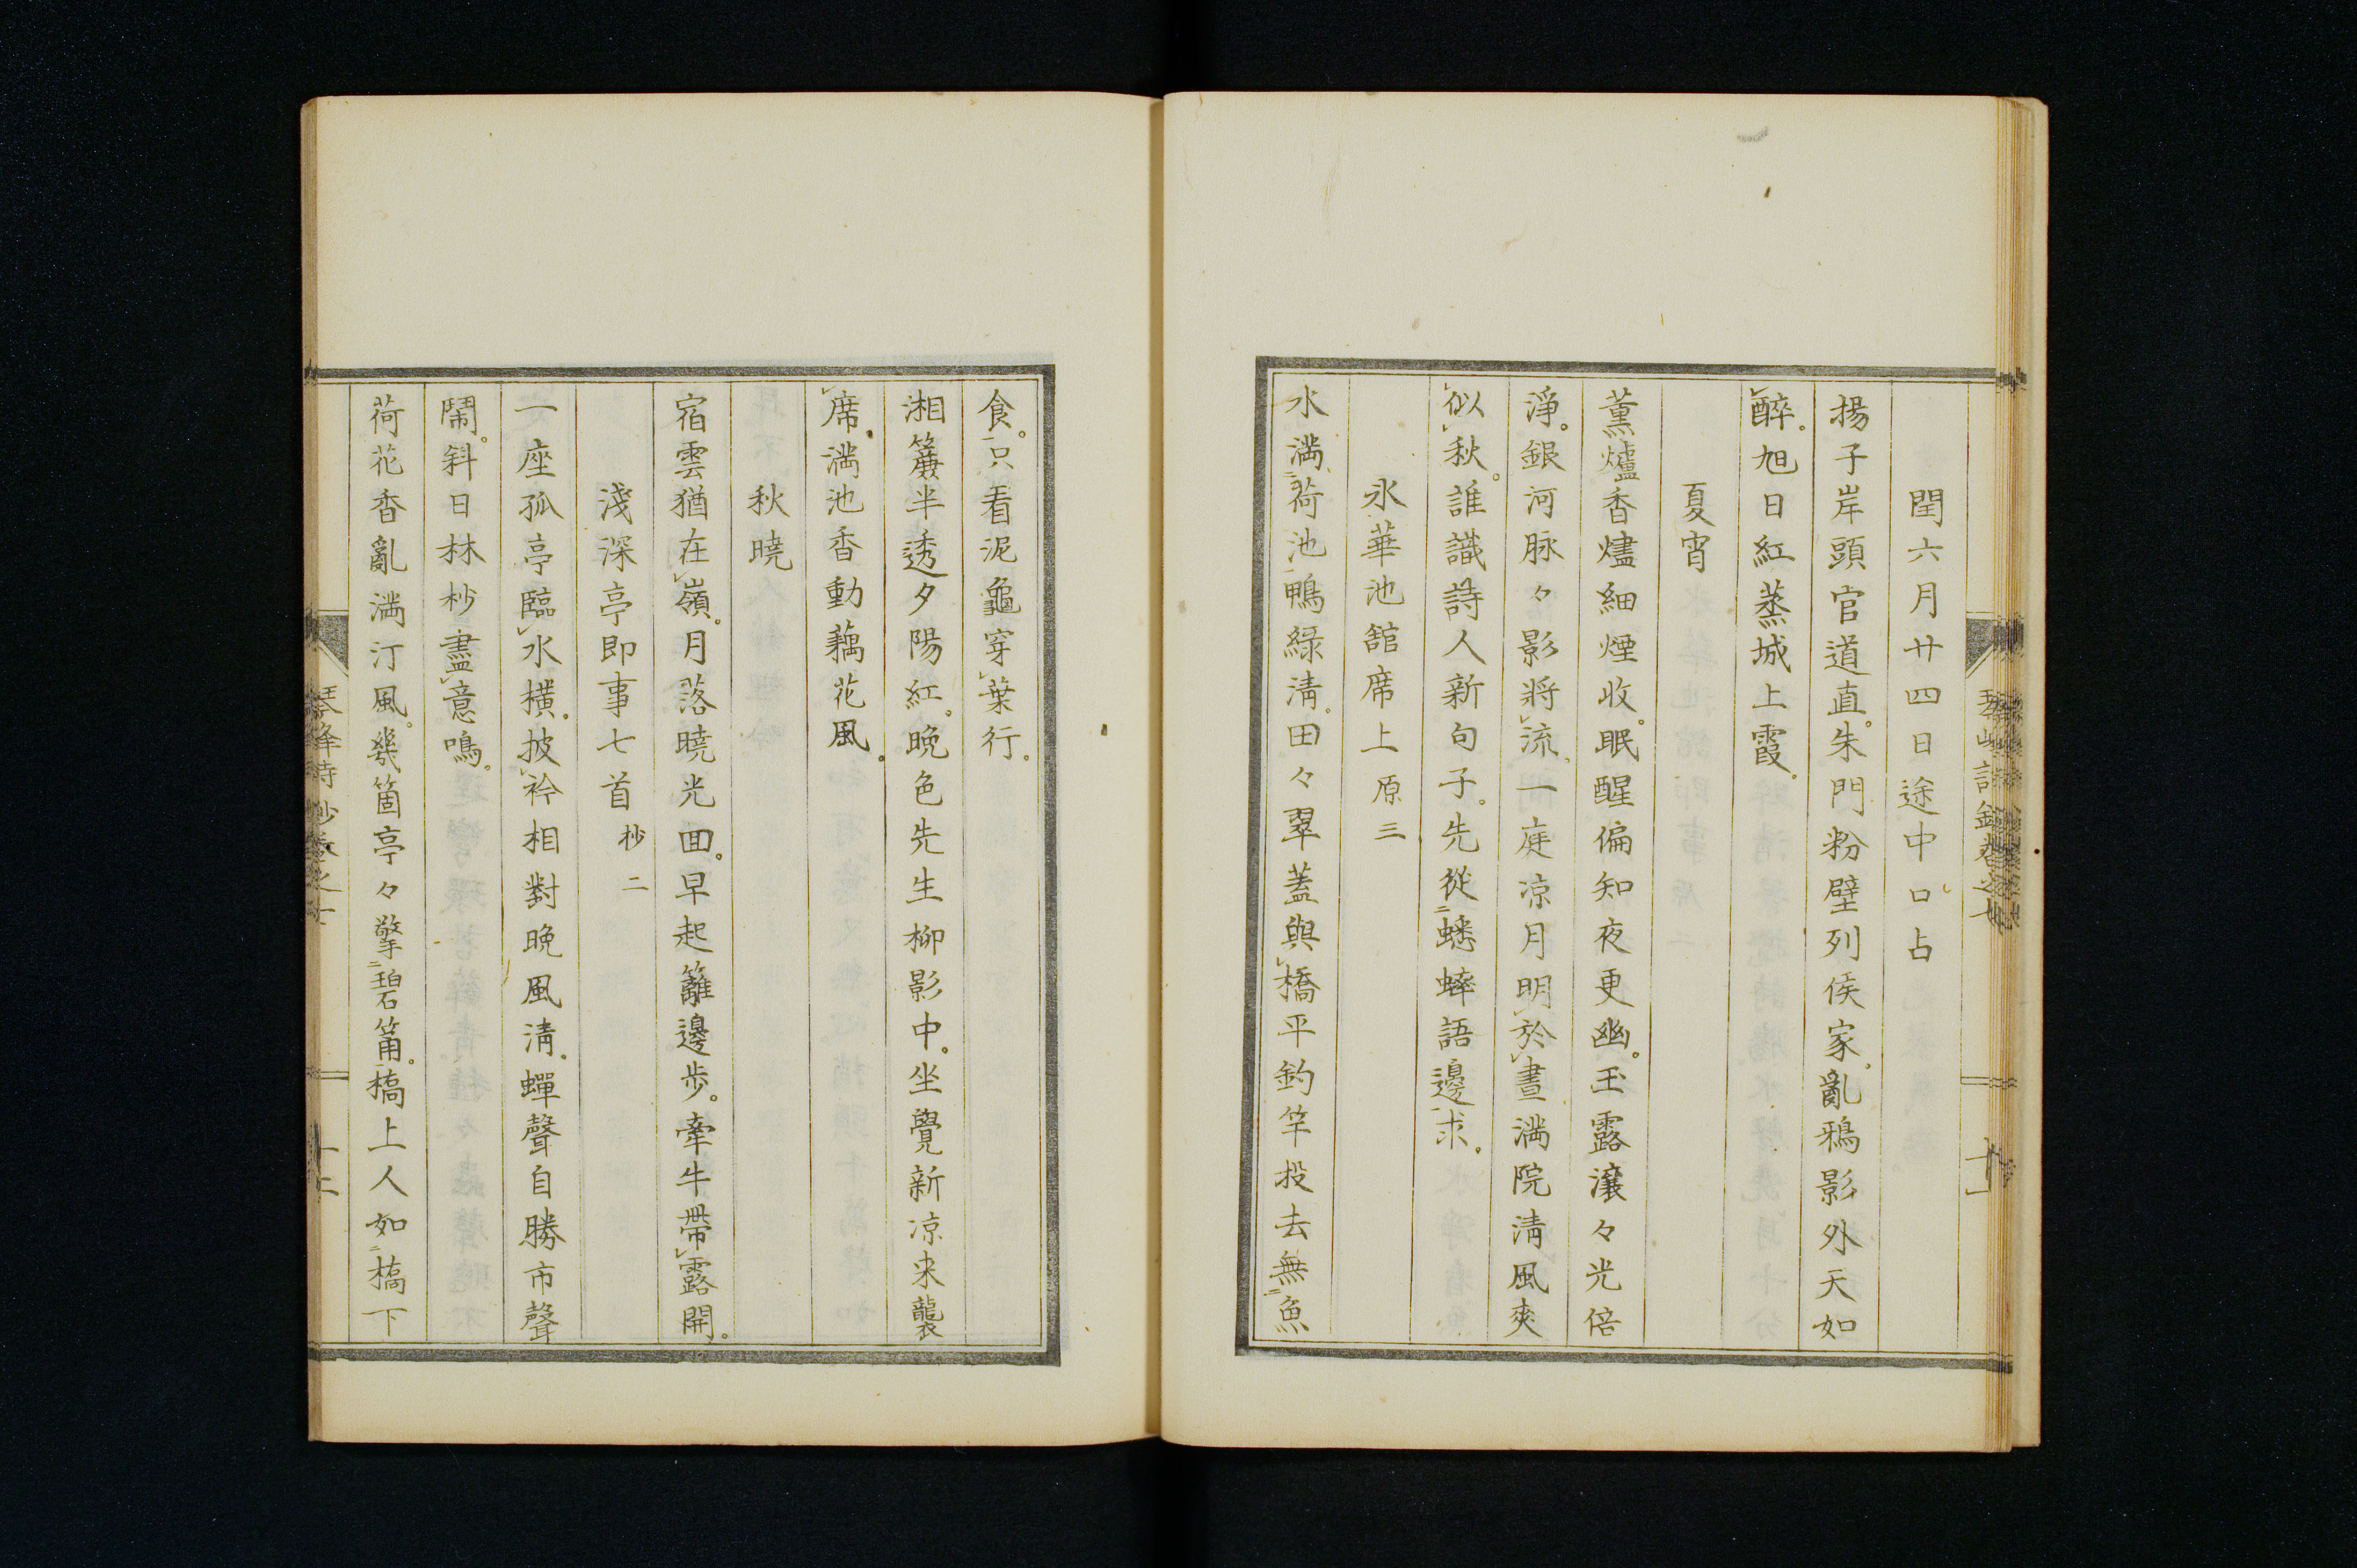 閏六月廿四日途中口占
揚子岸頭官道直。朱門粉壁列侯家。亂鴉影外天如
醉。旭日紅蒸城上霞。
夏宵
薰爐香燼細煙收。眠醒偏知夜更幽。玉露瀼々光倍
淨。銀河脉々影將流。一庭凉月明於晝滿院淸風爽
似秋。誰識詩人新句子。先從蟋蟀語邊求。
氷華池舘席上 原三
水滿荷池鴨綠淸。田々翠蓋與橋平釣竿投去無魚
食。只看泥龜穿葉行。
湘簾半透夕陽紅。晩色先生柳影中。坐覺新凉来襲
席。滿池香動藕花風。
秋曉
宿雲猶在嶺。月落曉光回。早起籬邊步。牽牛帶露開。
淺深亭即事七首 抄二
一座孤亭臨水橫。披衿相對晩風淸。蟬聲自勝市聲
鬧。斜日林杪盡意鳴。
荷花香亂滿汀風。幾箇亭々擎碧筩。橋上人如橋下